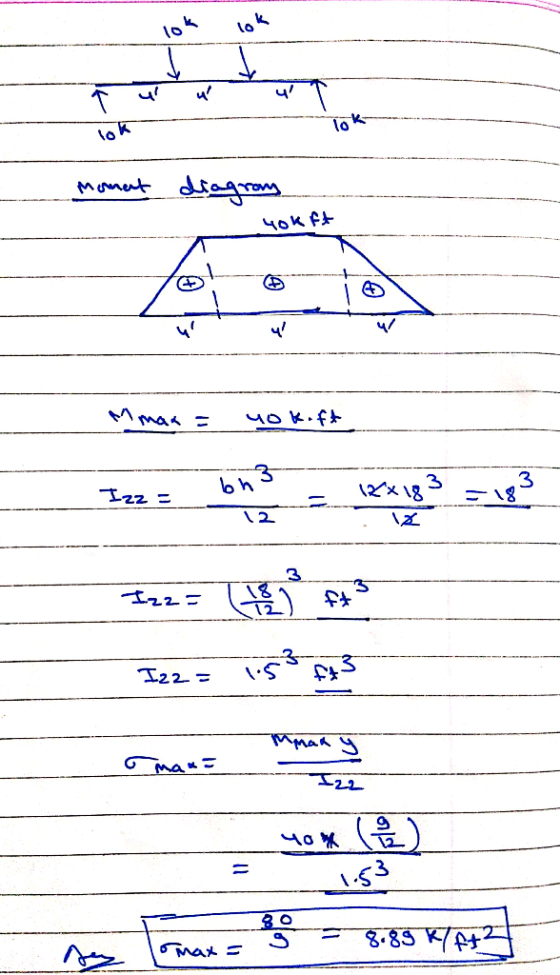 10k 10k
4' 4' 4'
10k 10k
Moment diagram
40k ft
+ + +
4' 4' 4'
Mmax = 40 k.ft
Izz = bh³/12 = 12×18³/12 = 18³
Izz = (18/12)³ ft³
Izz = 1.5³ ft³
σmax = Mmax y/Izz
= 40×(9/12)/1.5³
Ans σmax = 80/9 = 8.89 k/ft²